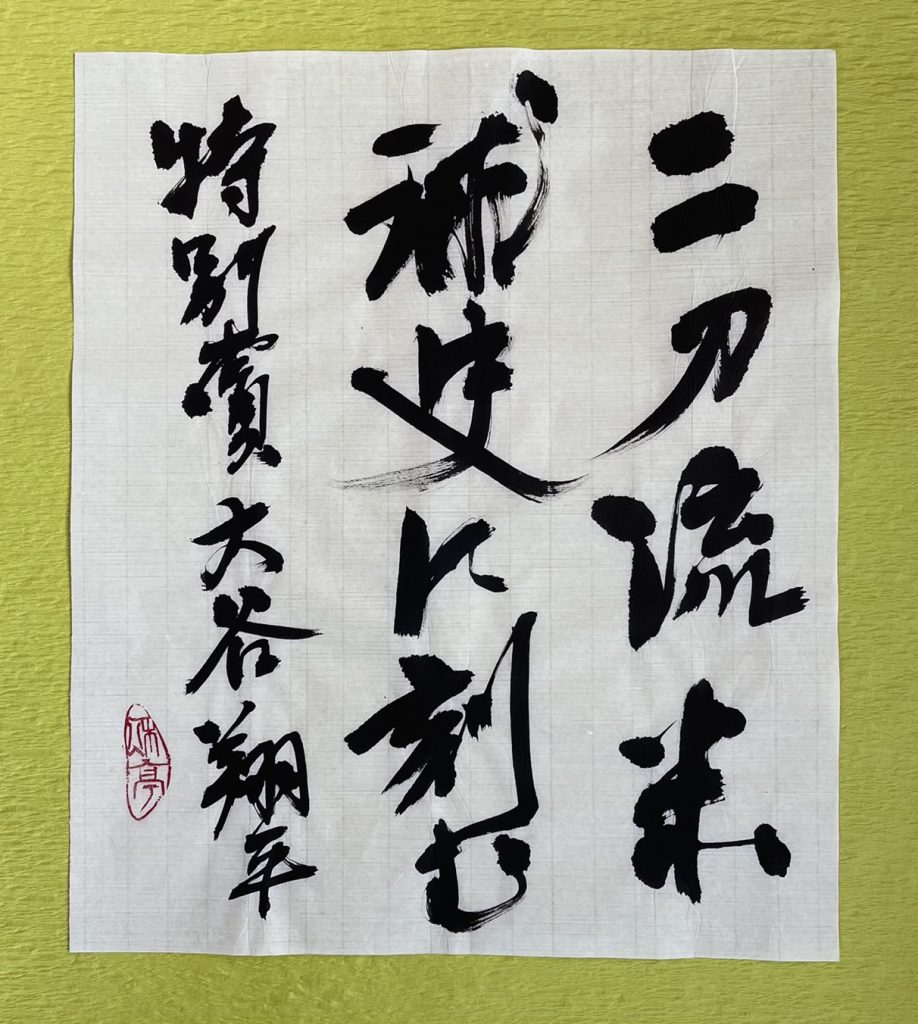 二刀流米
球史に刻む
特別賞 大谷翔平